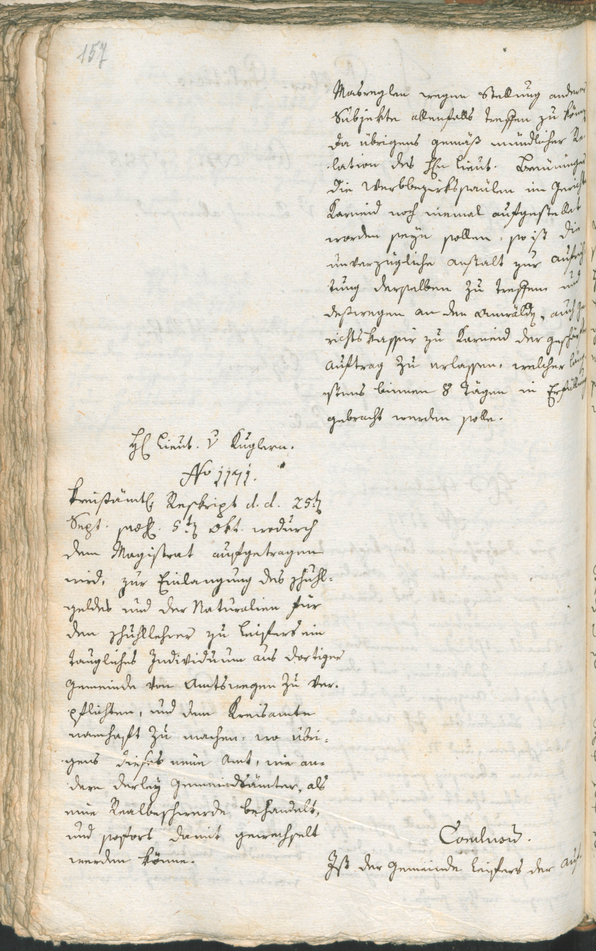 157
Masreglen wegen Stellung anderer
Subjekte allenfalls treffen zu könn
da übrigens gemäß mündlicher Re
lation des Hn Lieut.
die Werbbezirkssäulen im Gericht
Karneid noch niemal aufgestellet
worden seyn sollen, so ist die
unverzügliche Anstalt zur Aufrich
tung derselben zu treffen und
deßwegen an den Anwald, auch Ge
richtskassir zu Karneid der
Auftrag zu erlassen, welcher läng
stens binnen 8 Tägen in Erfüllung
gebracht werden solle.
H. Lieut. v Kuglern.
No 1171.
Kreisämtl. Reskript d. d. 25t
Sept. 5t Okt. wodurch
dem Magistrat aufgetragen
wird, zur Einlangung des Schuhl-
geldes und der Naturalien für
den Schuhllehrer zu Leifers ein
taugliches Individuum aus dortiger
Gemeinde von Amtswegen zu ver-
pflichten, und dem Kreisamte
namhaft zu machen, wo übri-
gens dieses neue Amt, wie an-
dere derley Gemeindsämter, als
eine Realbeschwerde behandelt,
und sofort damit gewechselt
werden könne.
Conclusum.
Ist der Gemeinde Leifers der Auf-